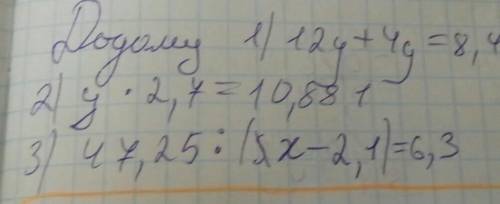 Додому 1) 12y+4y=8,4
2) y · 2,7=10,881
3) 47,25:(5x-2,1)=6,3